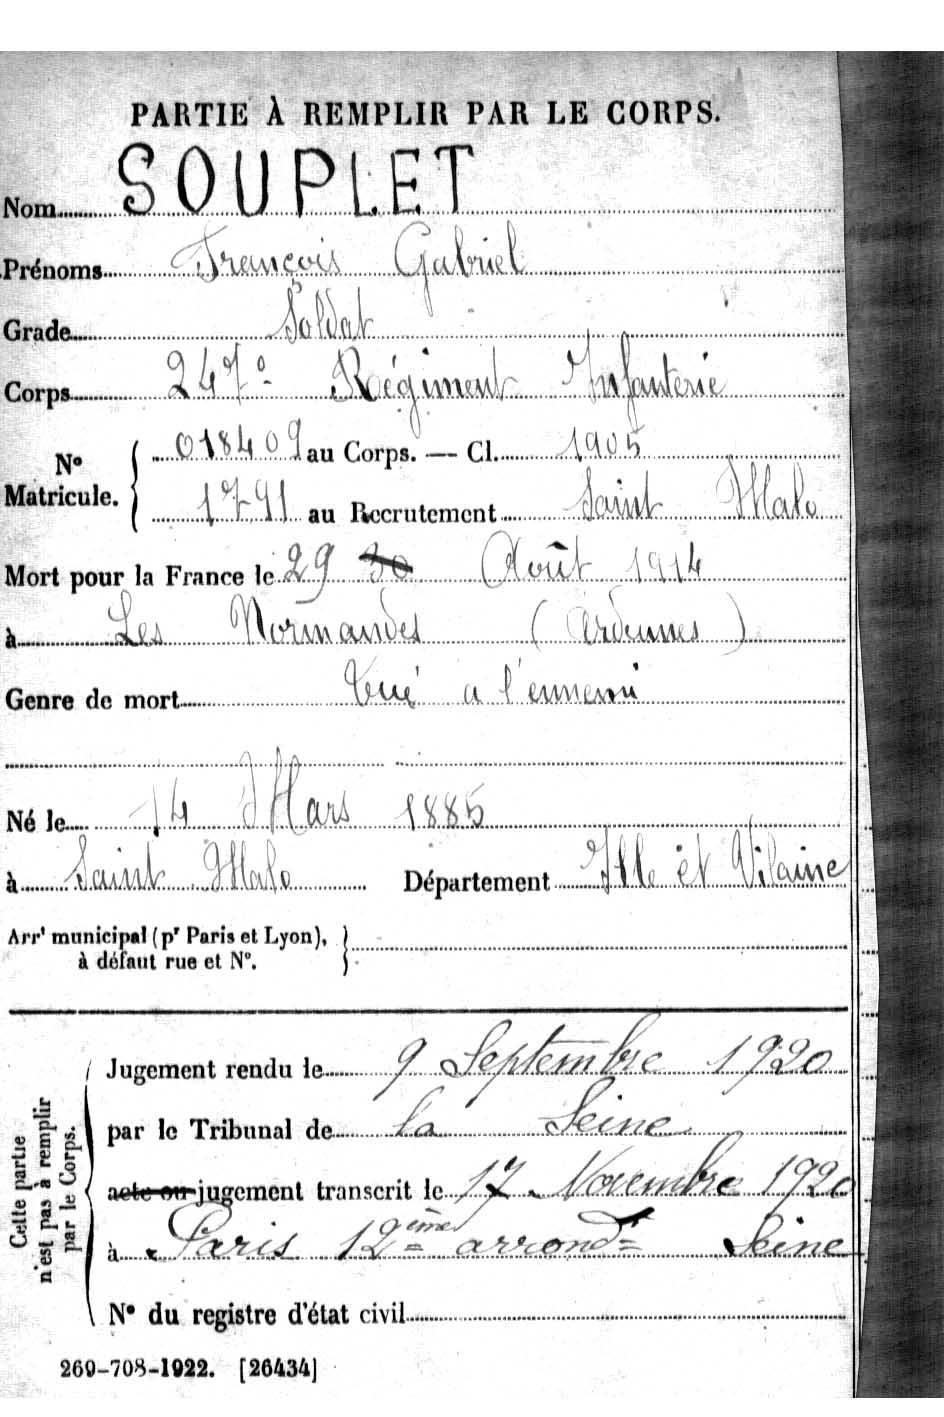 PARTIE À REMPLIR PAR LE CORPS.
Nom SOUPLET
Prénoms François Gabriel
Grade Soldat
Corps 247e Régiment Infanterie
N° Matricule. { 018409 au Corps. — Cl. 1905
1791 au Recrutement Saint Malo
Mort pour la France le 29 30 Août 1914
à Les Normandes (Ardennes)
Genre de mort tué a l'ennemi
Né le 14 Mars 1885
à Saint Malo Département Ille et Vilaine
Arrt municipal (pr Paris et Lyon), }
à défaut rue et N°.
Cette partie
n'est pas à remplir
par le Corps.
Jugement rendu le 9 Septembre 1920
par le Tribunal de la Seine
acte ou jugement transcrit le 17 Novembre 1920
à Paris 12ème arrondt Seine
N° du registre d'état civil
269-708-1922. [26434]